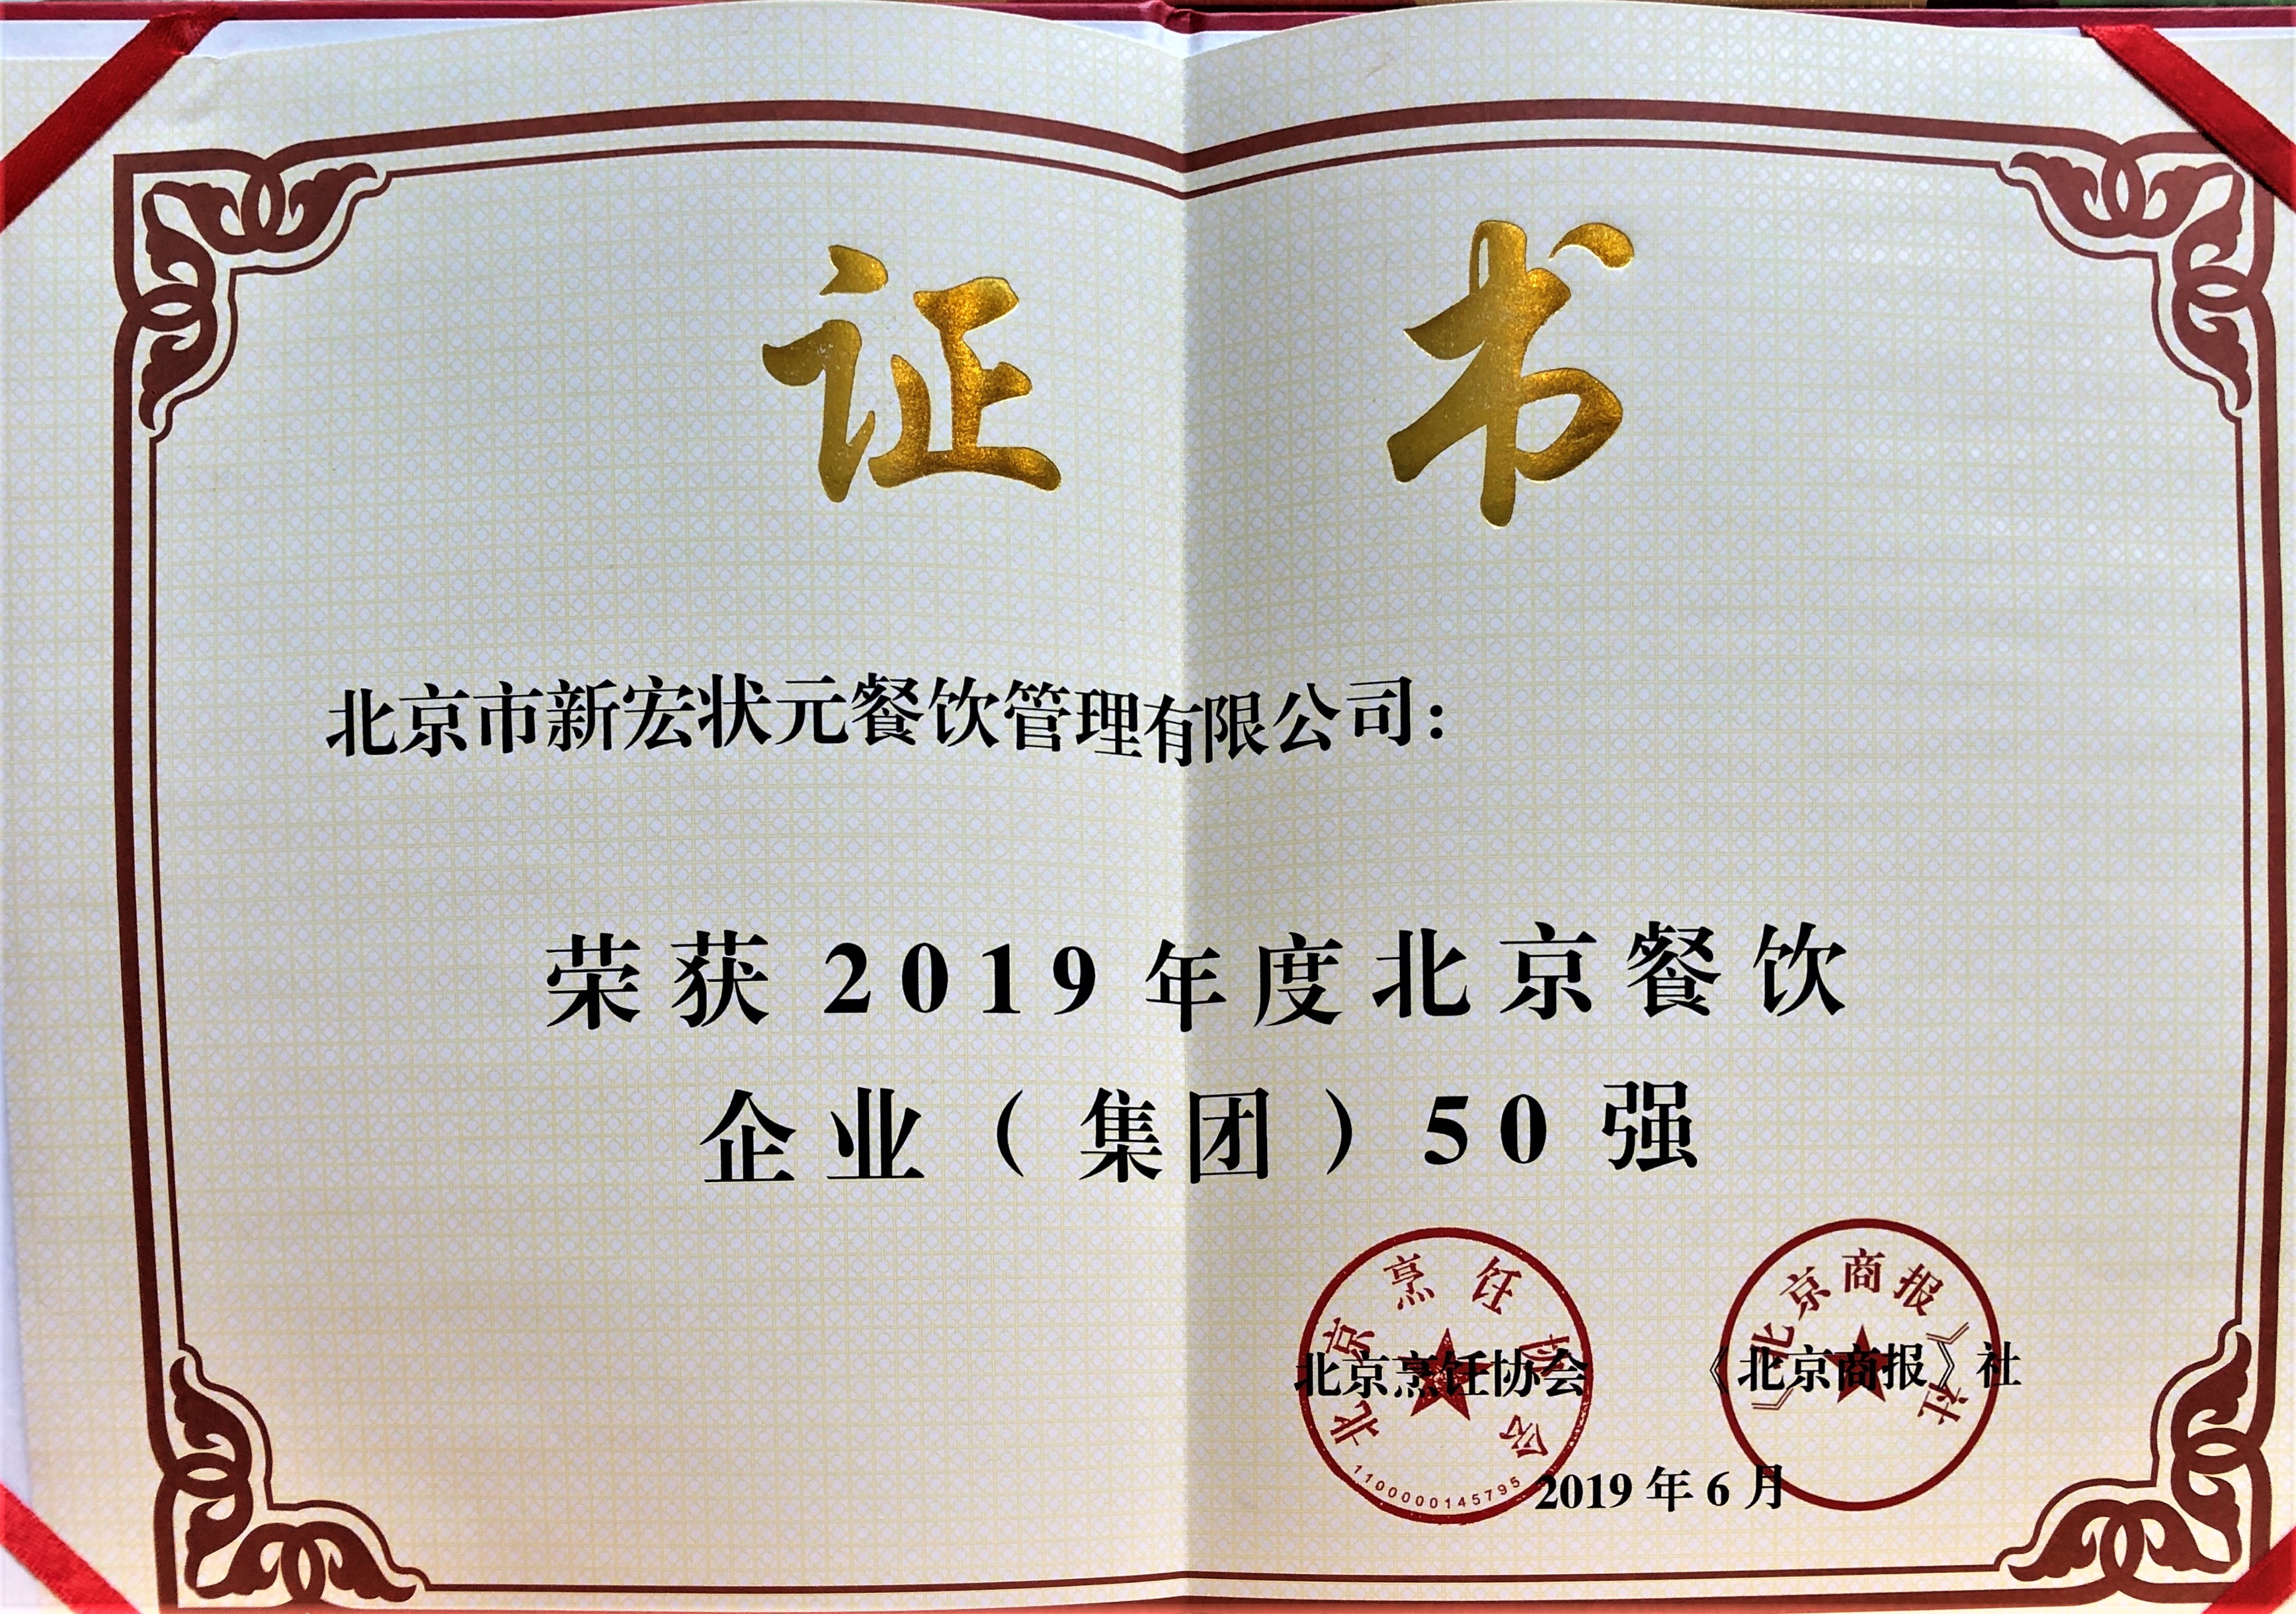 证书
北京市新宏状元餐饮管理有限公司：
荣获2019年度北京餐饮
企业（集团）50强
北京烹饪协会
1100000145795
《北京商报》社
北京烹饪协会 《北京商报》社
2019年6月